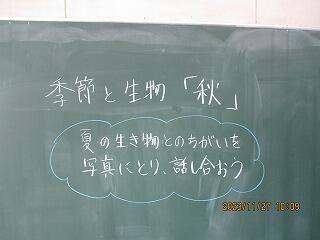 季節と生物「秋」
夏の生き物とのちがいを
写真にとり、話し合おう
2023/11/27 10:09